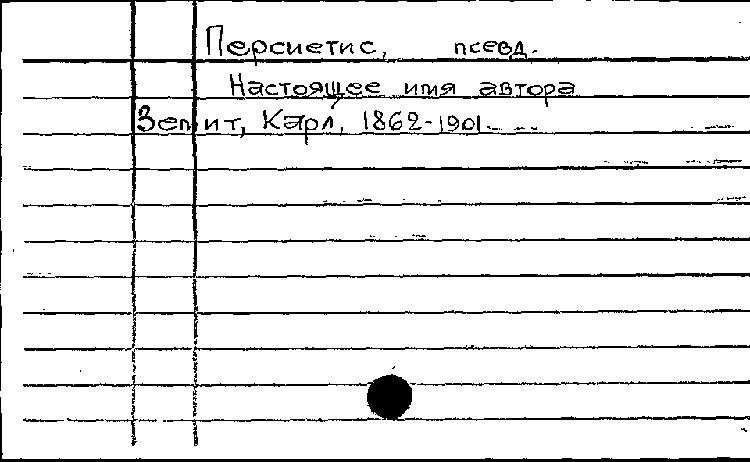 Персиетис, псевд.
Настоящее имя автора
Земит, Карл, 1862-1901.